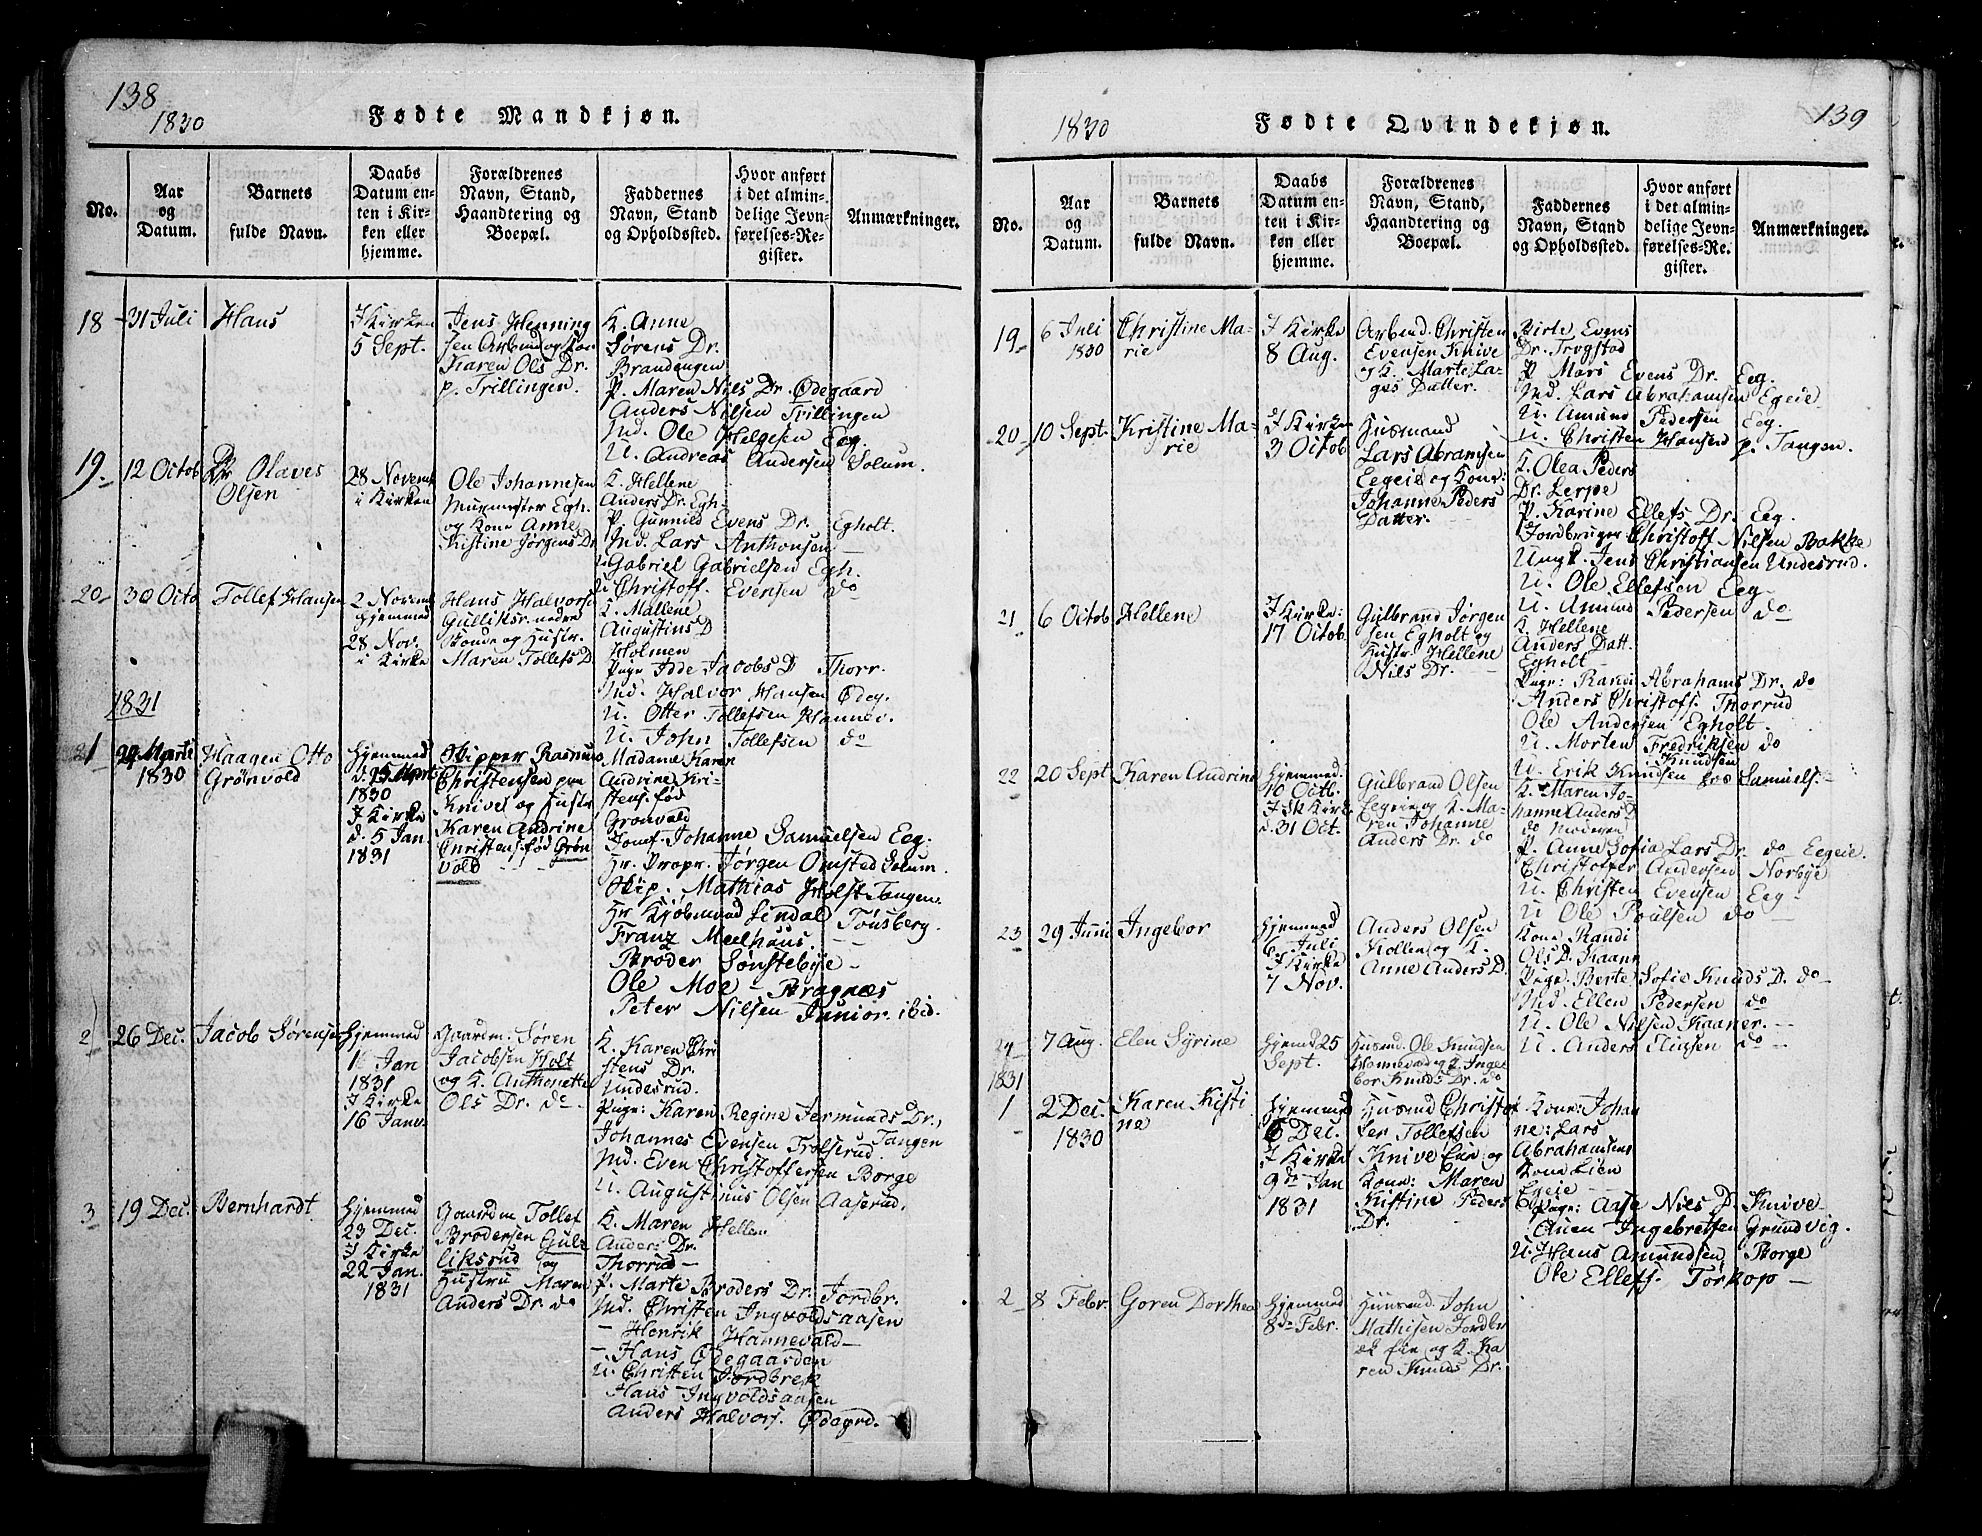 138
1830
Fødte Mandkjøn.
No.
Aar
og
Datum.
Barnets
fulde Navn.
Daabs
Datum en-
ten i Kir-
ken eller
hjemme.
Forældrenes
Navn, Stand,
Haandtering og
Boepæl.
Faddernes
Navn, Stand
og Opholdssted.
Hvor anført
i det almin-
delige Jevn-
førelses-Re-
gister.
Anmærkninger.
18
31 Juli
Hans
I Kirken
5 Sept.
Jens Henning
sen Arbmd og Kon
Karen Ols Dr.
p. Trillingen.
K. Anne
Sørens Dr.
Brandengen
P. Maren Nils Dr. Ødegaard
Anders Nilsen Trillingen
Md. Ole Helgesen Eeg.
U. Andreas Andersen Solum.
19.
12 Octob
Olaves
Olsen
28 Novemb
i Kirken
Ole Johannesen
Murmester Egh.
og Kone Anne
Kristine Jørgens Dr
K. Hellene
Anders Dr. Egh-
P. Gunnild Evens Dr. Egholt.
Md. Lars Anthonsen —
U Gabriel Gabrielsen Egh.
U Christoff. Evensen do
20
30 Octo
Tollef Hansen
2 Novemb
hjemmed
28 Nov.
i Kirke
Hans Halvors:
Gulliksr. nedre
Bonde og Hustr.
Maren Tollefs D.
K. Mallene
Augustins D
Holmen
Pige Idde Jacobs D Thorr.
Md. Halvor Hansen Ødeg.
U. Otter Tollefsen Hannev.
U. John Tollefsen do
1831
1
Marts
1830
Haagen Otto
Grönvold
hjemmed
d. 25 Marts
1830
I Kirke
d. 5 Jan.
1831
Skipper Rasmus
Christensen paa
Knivei og Hustr
Karen Andrine
Christens. fød Grøn
vold
Madame Karen
Andrine Kri-
stens. fød
Gronvald
Jomf. Johanne Samuelsen Eeg.
Hr. Propr. Jørgen Omsted Solum.
Skip. Mathias Holst Tangen.
Hr Kjöbmand Lindal Tönsberg.
Franz Meelhuus. — —
Broder Sønstebye —
Ole Moe — Bragnæs
Peter Nilsen Junior. ibid.
2
26 Dec.
Jacob Sørensen
hjemmed
1 Jan
1831
I Kirke
16 Janv.
Gaardm. Søren
Jacobsen Holt
og K. Anthonette
Ols Dr. do
K. Karen Chr
stens Dr.
Undesrud.
Pige: Karen Regine Jermunds Dr,
Tangen
Johannes Evensen Trolserud.
Md. Even Christoffersen Borge
U. Augustinus Olsen Aaserud.
3
19 Dec.
Bernhardt.
hjemmed
23 Dec.
I Kirke
22 Jan.
1831
Gaardm Tollef
Brodersen Gul-
liksrud og
Hustru Maren
Anders Dr. do
K. Maren Hellene
Anders Dr.
Thorrud —
P. Marte Broders Dr. Jordbr.
Md. Christen Ingvoldsaasen
— Henrik Hannevald —
— Hans Ødegaarden
U. Christen Jordbrek
Hans Ingvoldsaasen
Anders Halvors. Ødegrd.
139
1830
Fødte Qvindekjøn.
No.
Aar
og
Datum.
Barnets
fulde Navn.
Daabs
Datum en-
ten i Kir-
køn eller
hjemme.
Forældrenes
Navn, Stand,
Haandtering og
Boepæl.
Faddernes
Navn, Stand
og Opholdssted.
Hvor anført
i det almin-
delige Jevn-
førelses-Re-
gister.
Anmærkninger.
19
6 Juli
1830
Christine Ma-
rie
I Kirke
8 Aug.
Arbmd. Christen
Evensen Knive
og K. Marte La-
ges Datter.
Birte Evens
Dr. Trygstad
P Mari Evens Dr. Eeg.
Md. Lars Abrahamsen Egeie
U. Amund Pedersen Eeg.
U. Christen Hansen p. Tangen.
20
10 Sept.
Kristine Ma-
rie
I Kirken
3 Octob
Husmand
Lars Abramsen
Eegeie og Kone:
Johanne Peders
Datter.
K. Olea Peders
Dr. Lerpe
P. Karine Ellefs Dr. Eeg.
Jordbruger Christoff. Nilsen Bakke
Ungk. Jens Christiansen Undesrud.
U. Ole Ellefsen Eeg
U. Amund Pedersen do
21
6 Octob
Hellene
I Kirke:
17 Octob.
Gulbrand Jörgen
sen Egholt og
Hustr. Hellene
Nils Dr.
K. Hellene
Anders Datt.
Egholt
Pige: Randi Abrahams Dr. do
Anders Christoff. Thorrud
Ole Andersen Egholt.
U. Morten Fredriksen do
U. Erik Knudsen hos Samuels.
22
20 Sept
Karen Andrine
hjemmed.
10 Octb.
I Kirk.
d. 31 Oct.
Gulbrand Olsen
Eegeie og K. Ma-
ren Johanne
Anders Dr. do
K. Maren Jo-
hanne Anders D
do Moderen
P. Anne Sofia Lars Dr. do Eegeie.
Christoffer Andersen Norbye
U. Christen Evensen Eeg
U Ole Poulsen do
23
29 Juni
Ingebor
hjemmed
6 Juli
I Kirke
7 Nov.
Anders Olsen
Kollen og K.
Anne Anders D.
Kone Randi
Ols D. Kaann
Pige. Berte Sofie Knuds D. do
Md. Ellen Pedersen do
U. Ole Nilsen Kaaner.
U. Anders Eliasen do
24
7 Aug.
Elen Syrine
hjem d 25
Sept.
Husmd. Ole Knudsen
Hannevold og K. Inge
bor Knuds: Dr. do
1831
1
2 Dec.
1830
Karen Kisti
ne
hjemmed
6 Dec.
I Kirke
9de Jan
1831
Husmd Christof
fer Tollefsen
Knive Eie og
Kone: Maren
Kistine Peders
Dr.
Kone: Johan
ne: Lars
Abrahamsens
Kone Lien
Egeie
Pige: Aase Niels D. Knive
Auen Ingebretsen Grundvig.
U. Hans Amundsen Borge
Ole Ellefs. Torkop —
2
8 Febr.
Goren Dorthea
hjemmed
8de Febr.
Huusmd. John
Mathisen Jordbr
æk Eie og K. Ka
ren Knuds Dr.